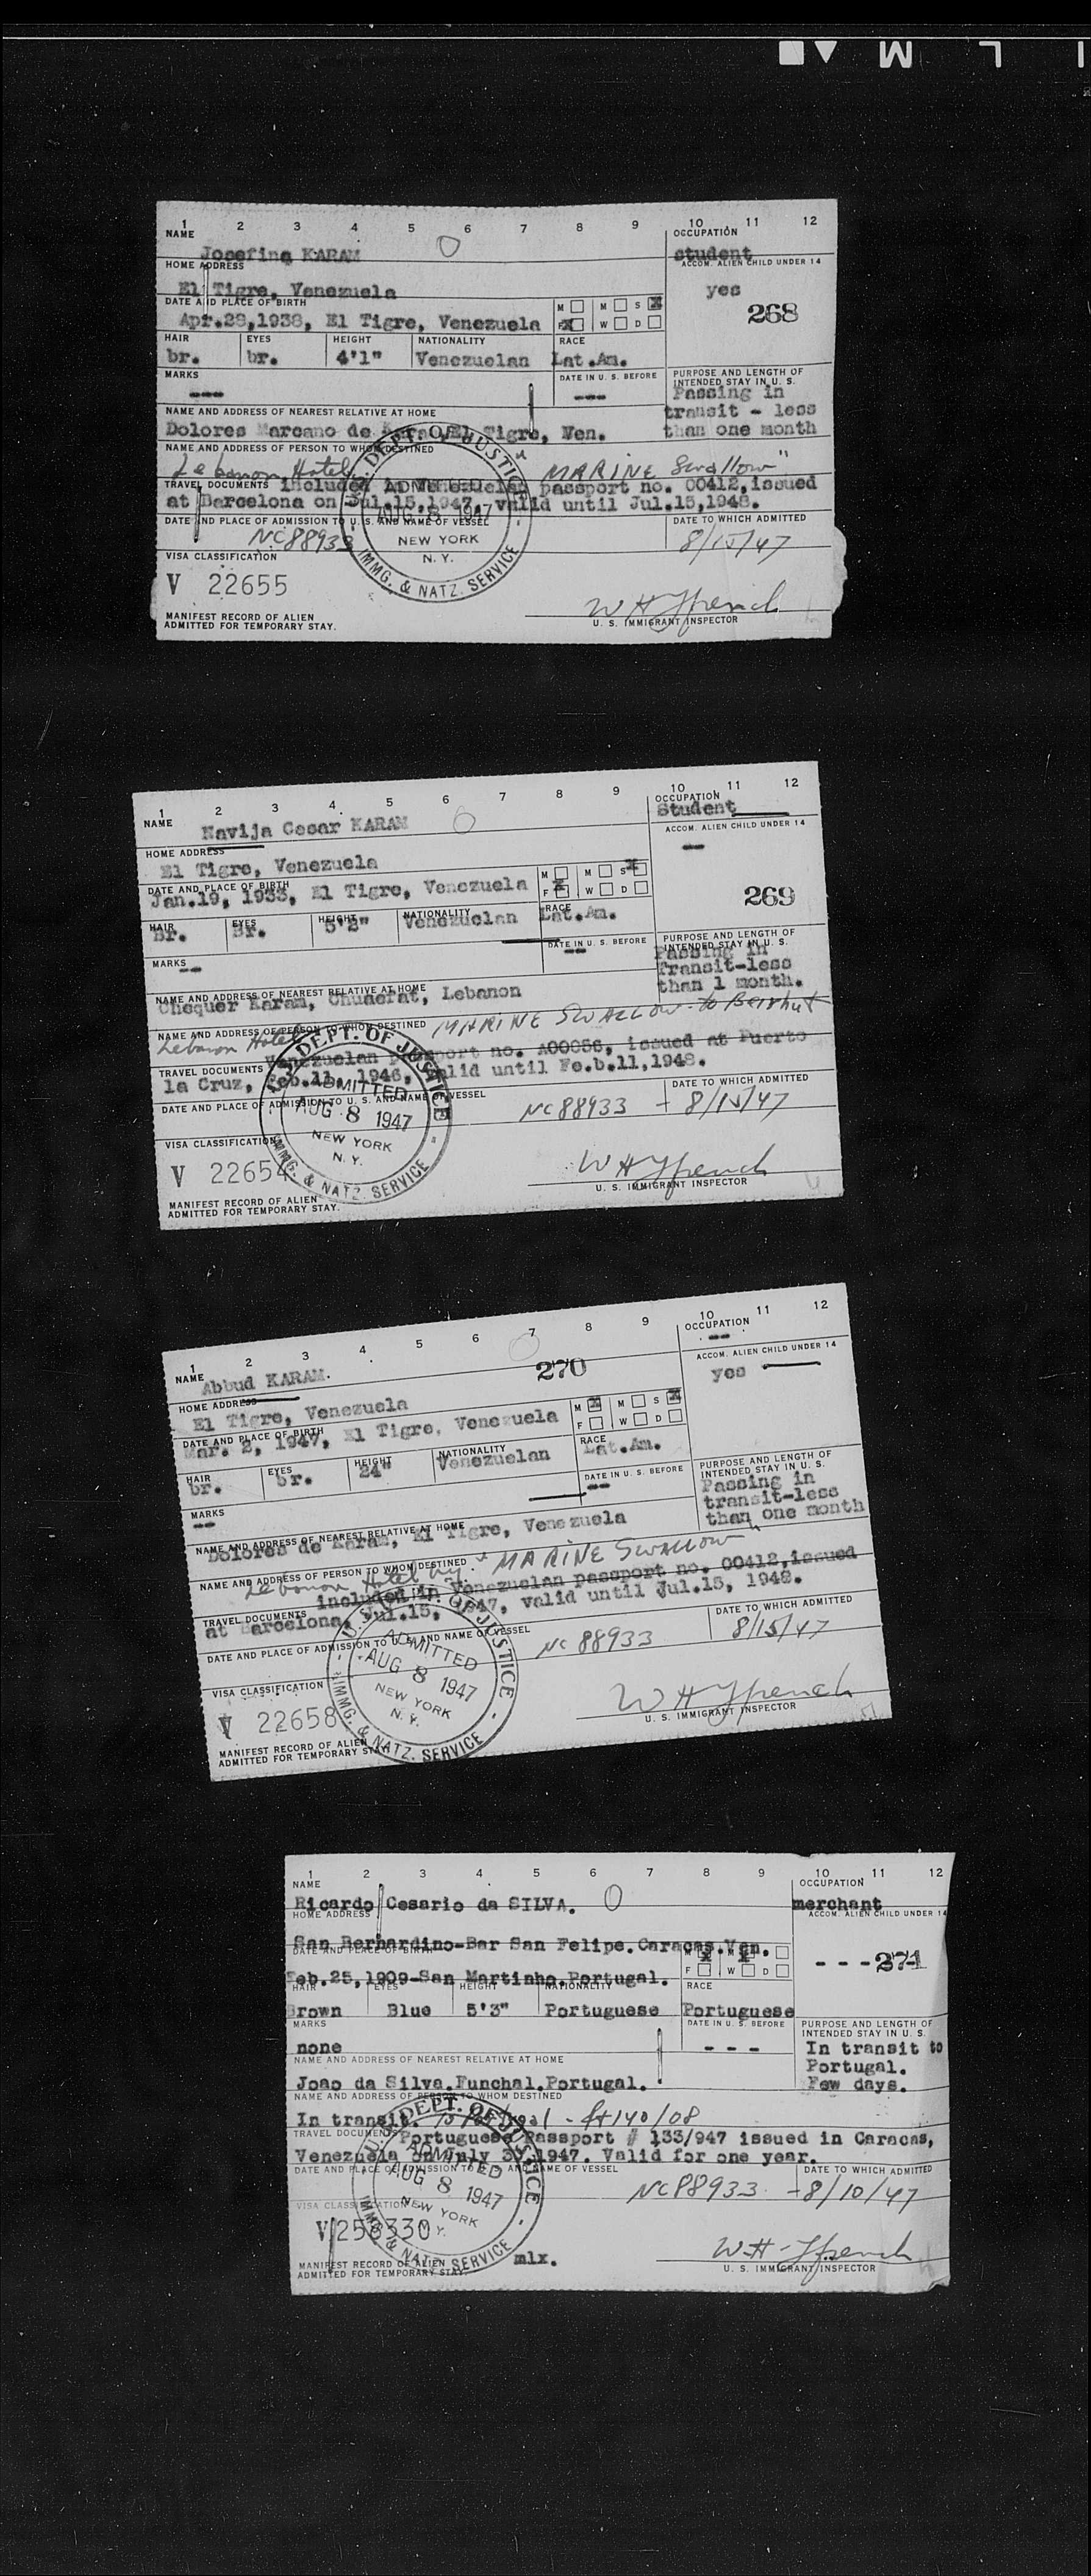 1 2 3 4 5 6 7 8 9 10 11 12
NAME
OCCUPATION
Josefina KARAM
student
HOME ADDRESS
ACCOM. ALIEN CHILD UNDER 14
El Tigre, Venezuela
yes
268
DATE AND PLACE OF BIRTH
M M S X
Apr.28,1938, El Tigre, Venezuela
F X W D
HAIR EYES HEIGHT NATIONALITY RACE
br. br. 4'1" Venezuelan Lat.Am.
MARKS
DATE IN U. S. BEFORE
PURPOSE AND LENGTH OF INTENDED STAY IN U. S.
--- ---
Passing in
transit - less
than one month
NAME AND ADDRESS OF NEAREST RELATIVE AT HOME
Dolores Marcano de Karam, El Tigre, Ven.
NAME AND ADDRESS OF PERSON TO WHOM DESTINED
Lebanon Hotel "MARINE Swallow"
TRAVEL DOCUMENTS included in Venezuelan passport no. 00412, issued
at Barcelona on Jul.15,1947, valid until Jul.15,1948.
DATE AND PLACE OF ADMISSION TO U. S. AND NAME OF VESSEL
DATE TO WHICH ADMITTED
NC88933
8/15/47
VISA CLASSIFICATION
V 22655
U. S. DEPT. OF JUSTICE
ADMITTED
AUG 8 1947
NEW YORK
N. Y.
IMMG. & NATZ. SERVICE
W H Ffrench
U. S. IMMIGRANT INSPECTOR
MANIFEST RECORD OF ALIEN
ADMITTED FOR TEMPORARY STAY.
1 2 3 4 5 6 7 8 9 10 11 12
NAME
OCCUPATION
Navija Cesar KARAM
Student
HOME ADDRESS
ACCOM. ALIEN CHILD UNDER 14
El Tigre, Venezuela
--
269
DATE AND PLACE OF BIRTH
M M S X
Jan.19, 1933, El Tigre, Venezuela
F X W D
HAIR EYES HEIGHT NATIONALITY RACE
Br. Br. 5'2" Venezuelan Lat.Am.
MARKS
DATE IN U. S. BEFORE
PURPOSE AND LENGTH OF INTENDED STAY IN U. S.
-- --
Passing in
Transit-less
than 1 month.
NAME AND ADDRESS OF NEAREST RELATIVE AT HOME
Chequer Karam, Chuaefat, Lebanon
NAME AND ADDRESS OF PERSON TO WHOM DESTINED
Lebanon Hotel MARINE SWALLOW to Beirut
TRAVEL DOCUMENTS Venezuelan passport no. A00656, issued at Puerto
la Cruz, Feb.11, 1946, valid until Fe.b.11,1948.
DATE AND PLACE OF ADMISSION TO U. S. AND NAME OF VESSEL
DATE TO WHICH ADMITTED
NC88933 - 8/15/47
VISA CLASSIFICATION
V 22654
U. S. DEPT. OF JUSTICE
ADMITTED
AUG 8 1947
NEW YORK
N. Y.
IMMG. & NATZ. SERVICE
W H Ffrench
U. S. IMMIGRANT INSPECTOR
MANIFEST RECORD OF ALIEN
ADMITTED FOR TEMPORARY STAY.
1 2 3 4 5 6 7 8 9 10 11 12
NAME
OCCUPATION
Abbud KARAM.
--
270
HOME ADDRESS
ACCOM. ALIEN CHILD UNDER 14
El Tigre, Venezuela
yes
DATE AND PLACE OF BIRTH
M X M S X
Mar. 2, 1947, El Tigre, Venezuela
F W D
HAIR EYES HEIGHT NATIONALITY RACE
br. br. 24" Venezuelan Lat.Am.
MARKS
DATE IN U. S. BEFORE
PURPOSE AND LENGTH OF INTENDED STAY IN U. S.
-- --
Passing in
transit-less
than one month
NAME AND ADDRESS OF NEAREST RELATIVE AT HOME
Dolores de Karam, El Tigre, Venezuela
NAME AND ADDRESS OF PERSON TO WHOM DESTINED
Lebanon Hotel NY. "MARINE SWALLOW"
TRAVEL DOCUMENTS included in Venezuelan passport no. 00412,issued
at Barcelona, Jul.15, 1947, valid until Jul.15, 1948.
DATE AND PLACE OF ADMISSION TO U. S. AND NAME OF VESSEL
DATE TO WHICH ADMITTED
NC 88933
8/15/47
VISA CLASSIFICATION
V 22658
U. S. DEPT. OF JUSTICE
ADMITTED
AUG 8 1947
NEW YORK
N. Y.
IMMG. & NATZ. SERVICE
W H Ffrench
U. S. IMMIGRANT INSPECTOR
MANIFEST RECORD OF ALIEN
ADMITTED FOR TEMPORARY STAY.
1 2 3 4 5 6 7 8 9 10 11 12
NAME
OCCUPATION
Ricardo Cesario da SILVA.
merchant
HOME ADDRESS
ACCOM. ALIEN CHILD UNDER 14
San Bernardino-Bar San Felipe.Caracas.Ven.
---271
DATE AND PLACE OF BIRTH
F W D
Feb.25,1909-San Martinho.Portugal.
HAIR EYES HEIGHT NATIONALITY RACE
Brown Blue 5'3" Portuguese Portuguese
MARKS
DATE IN U. S. BEFORE
PURPOSE AND LENGTH OF INTENDED STAY IN U. S.
none
---
In transit to
Portugal.
Few days.
NAME AND ADDRESS OF NEAREST RELATIVE AT HOME
Joao da Silva.Funchal.Portugal.
NAME AND ADDRESS OF PERSON TO WHOM DESTINED
In transit. to Portugal - 140/08
TRAVEL DOCUMENTS Portuguese Passport # 133/947 issued in Caracas,
Venezuela on July 30,1947. Valid for one year.
DATE AND PLACE OF ADMISSION TO U. S. AND NAME OF VESSEL
DATE TO WHICH ADMITTED
NC88933 - 8/10/47
VISA CLASSIFICATION
V 258330
U. S. DEPT. OF JUSTICE
ADMITTED
AUG 8 1947
NEW YORK
N. Y.
IMMG. & NATZ. SERVICE
mlx.
W H Ffrench
U. S. IMMIGRANT INSPECTOR
MANIFEST RECORD OF ALIEN
ADMITTED FOR TEMPORARY STAY.